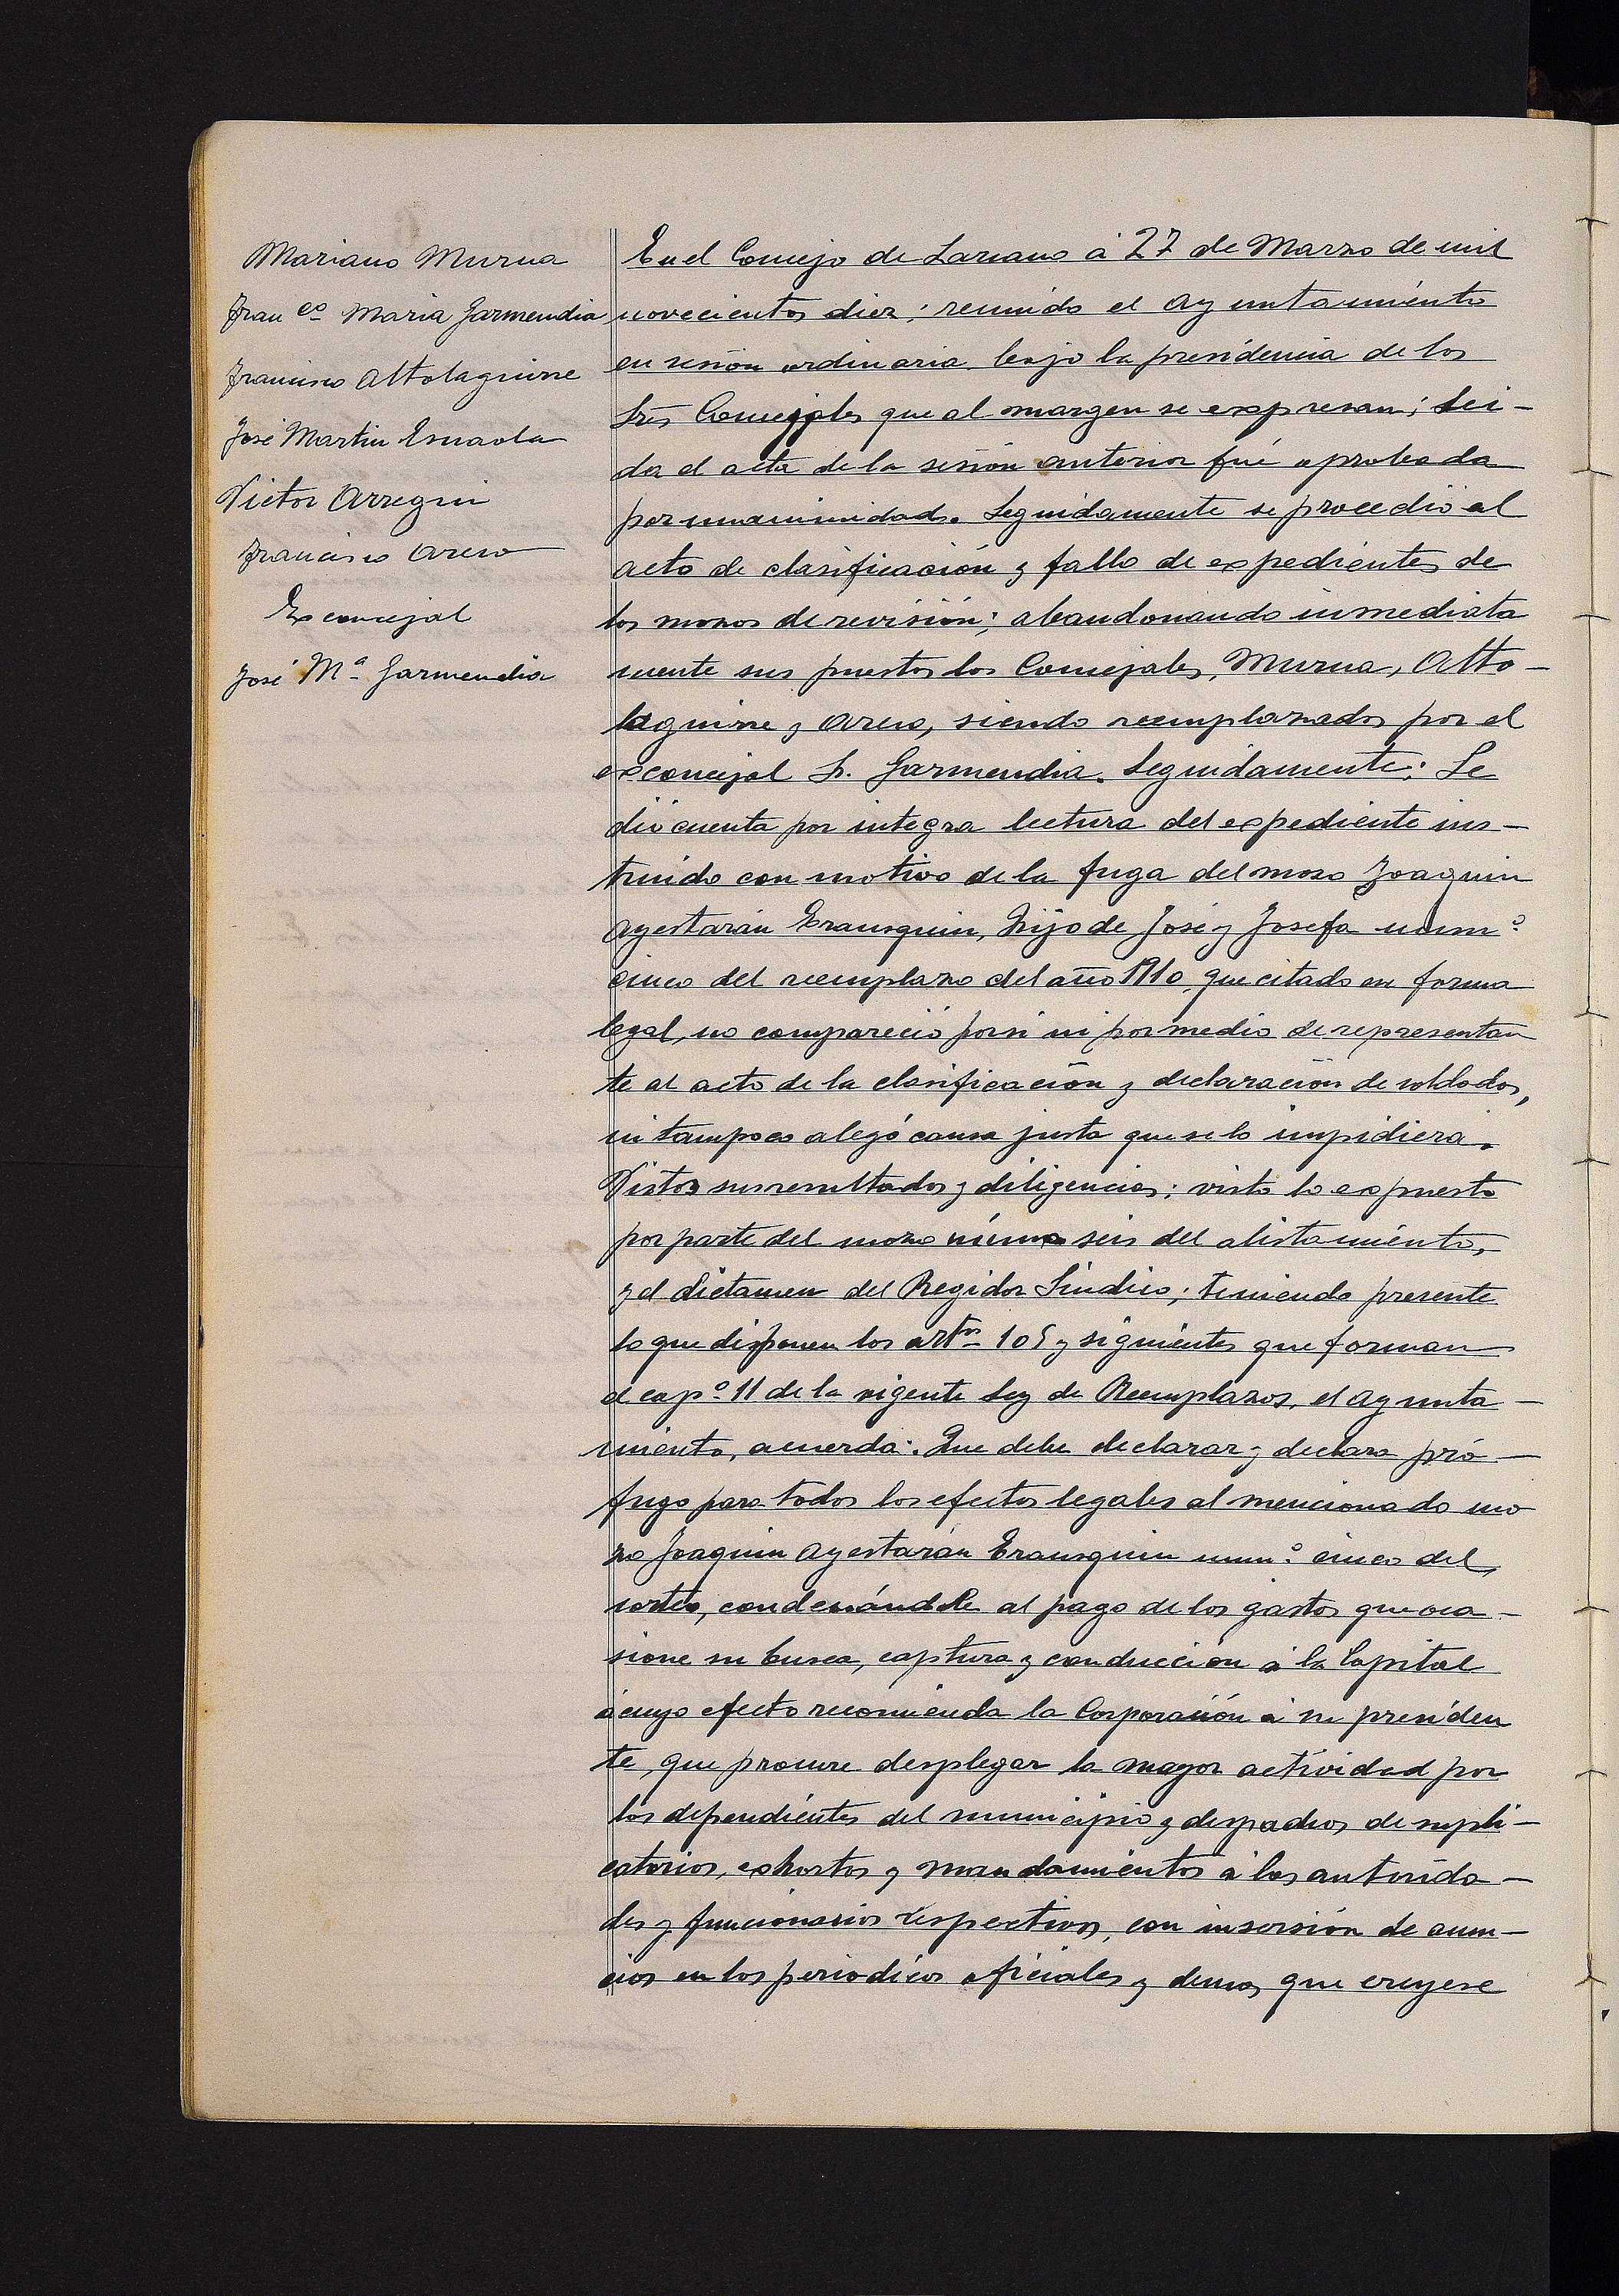 Mariano Murua
Fran co Maria Garmendia
Francisco Altolaguirre
José Martin Esnaola
Victor Arregui
Francisco Areso
Exconcejal
José Mª Garmendia
En el Concejo de Larrano á 27 de Marzo de mil
novecientos diez; reunido el Ayuntamiento
en sesión ordinaria bajo la presidencia de los
Srs Concejales que al margen se expresan; lei-
da el acta de la sesión anterior fué aprobada
por unanimidad. Seguidamente se procedió al
acto de clasificación y fallo de expedientes de
los mozos de revisión; abandonando inmediata
mente sus puestos los Concejales, Murua, Alto-
laguirre y Areso, siendo reemplazados por el
exconcejal Sr. Garmendia. Seguidamente: Se
dió cuenta por integra lectura del expediente ins-
truido con motivo de la fuga del mozo Joaquin
Ayestarán Erausquin, hijo de José y Josefa numº
cinco del reemplazo del año 1910, que citado en forma
legal, no compareció por si ni por medio de representan
te al acto de la clasificación y declaración de soldados,
ni tampoco alegó causa justa que se lo impidiera.
Vistos sus resultados y diligencias; visto lo expuesto
por parte del mozo número seis del alistamiento,
y el dictamen del Regidor Sindico; teniendo presente
lo que disponen los artos 105 y siguientes que forman
el capº 11 de la vigente Ley de Reemplazos, el Ayunta-
miento, acuerda: Que debe declarar y declara pró-
fugo para todos los efectos legales al mencionado mo
zo Joaquin Ayestarán Erausquin numº cinco del
sorteo, condenándole al pago de los gastos que oca-
sione su busca, captura y conducción á la Capital
á cuyo efecto recomienda la Corporación á su presiden
te, que procure desplegar la mayor actividad por
los dependientes del municipio y despachos de supli-
catorios, exhortos y mandamientos á las autorida-
des y funcionarios respectivos, con inserción de anun-
cios en los periodicos oficiales y demas que creyese